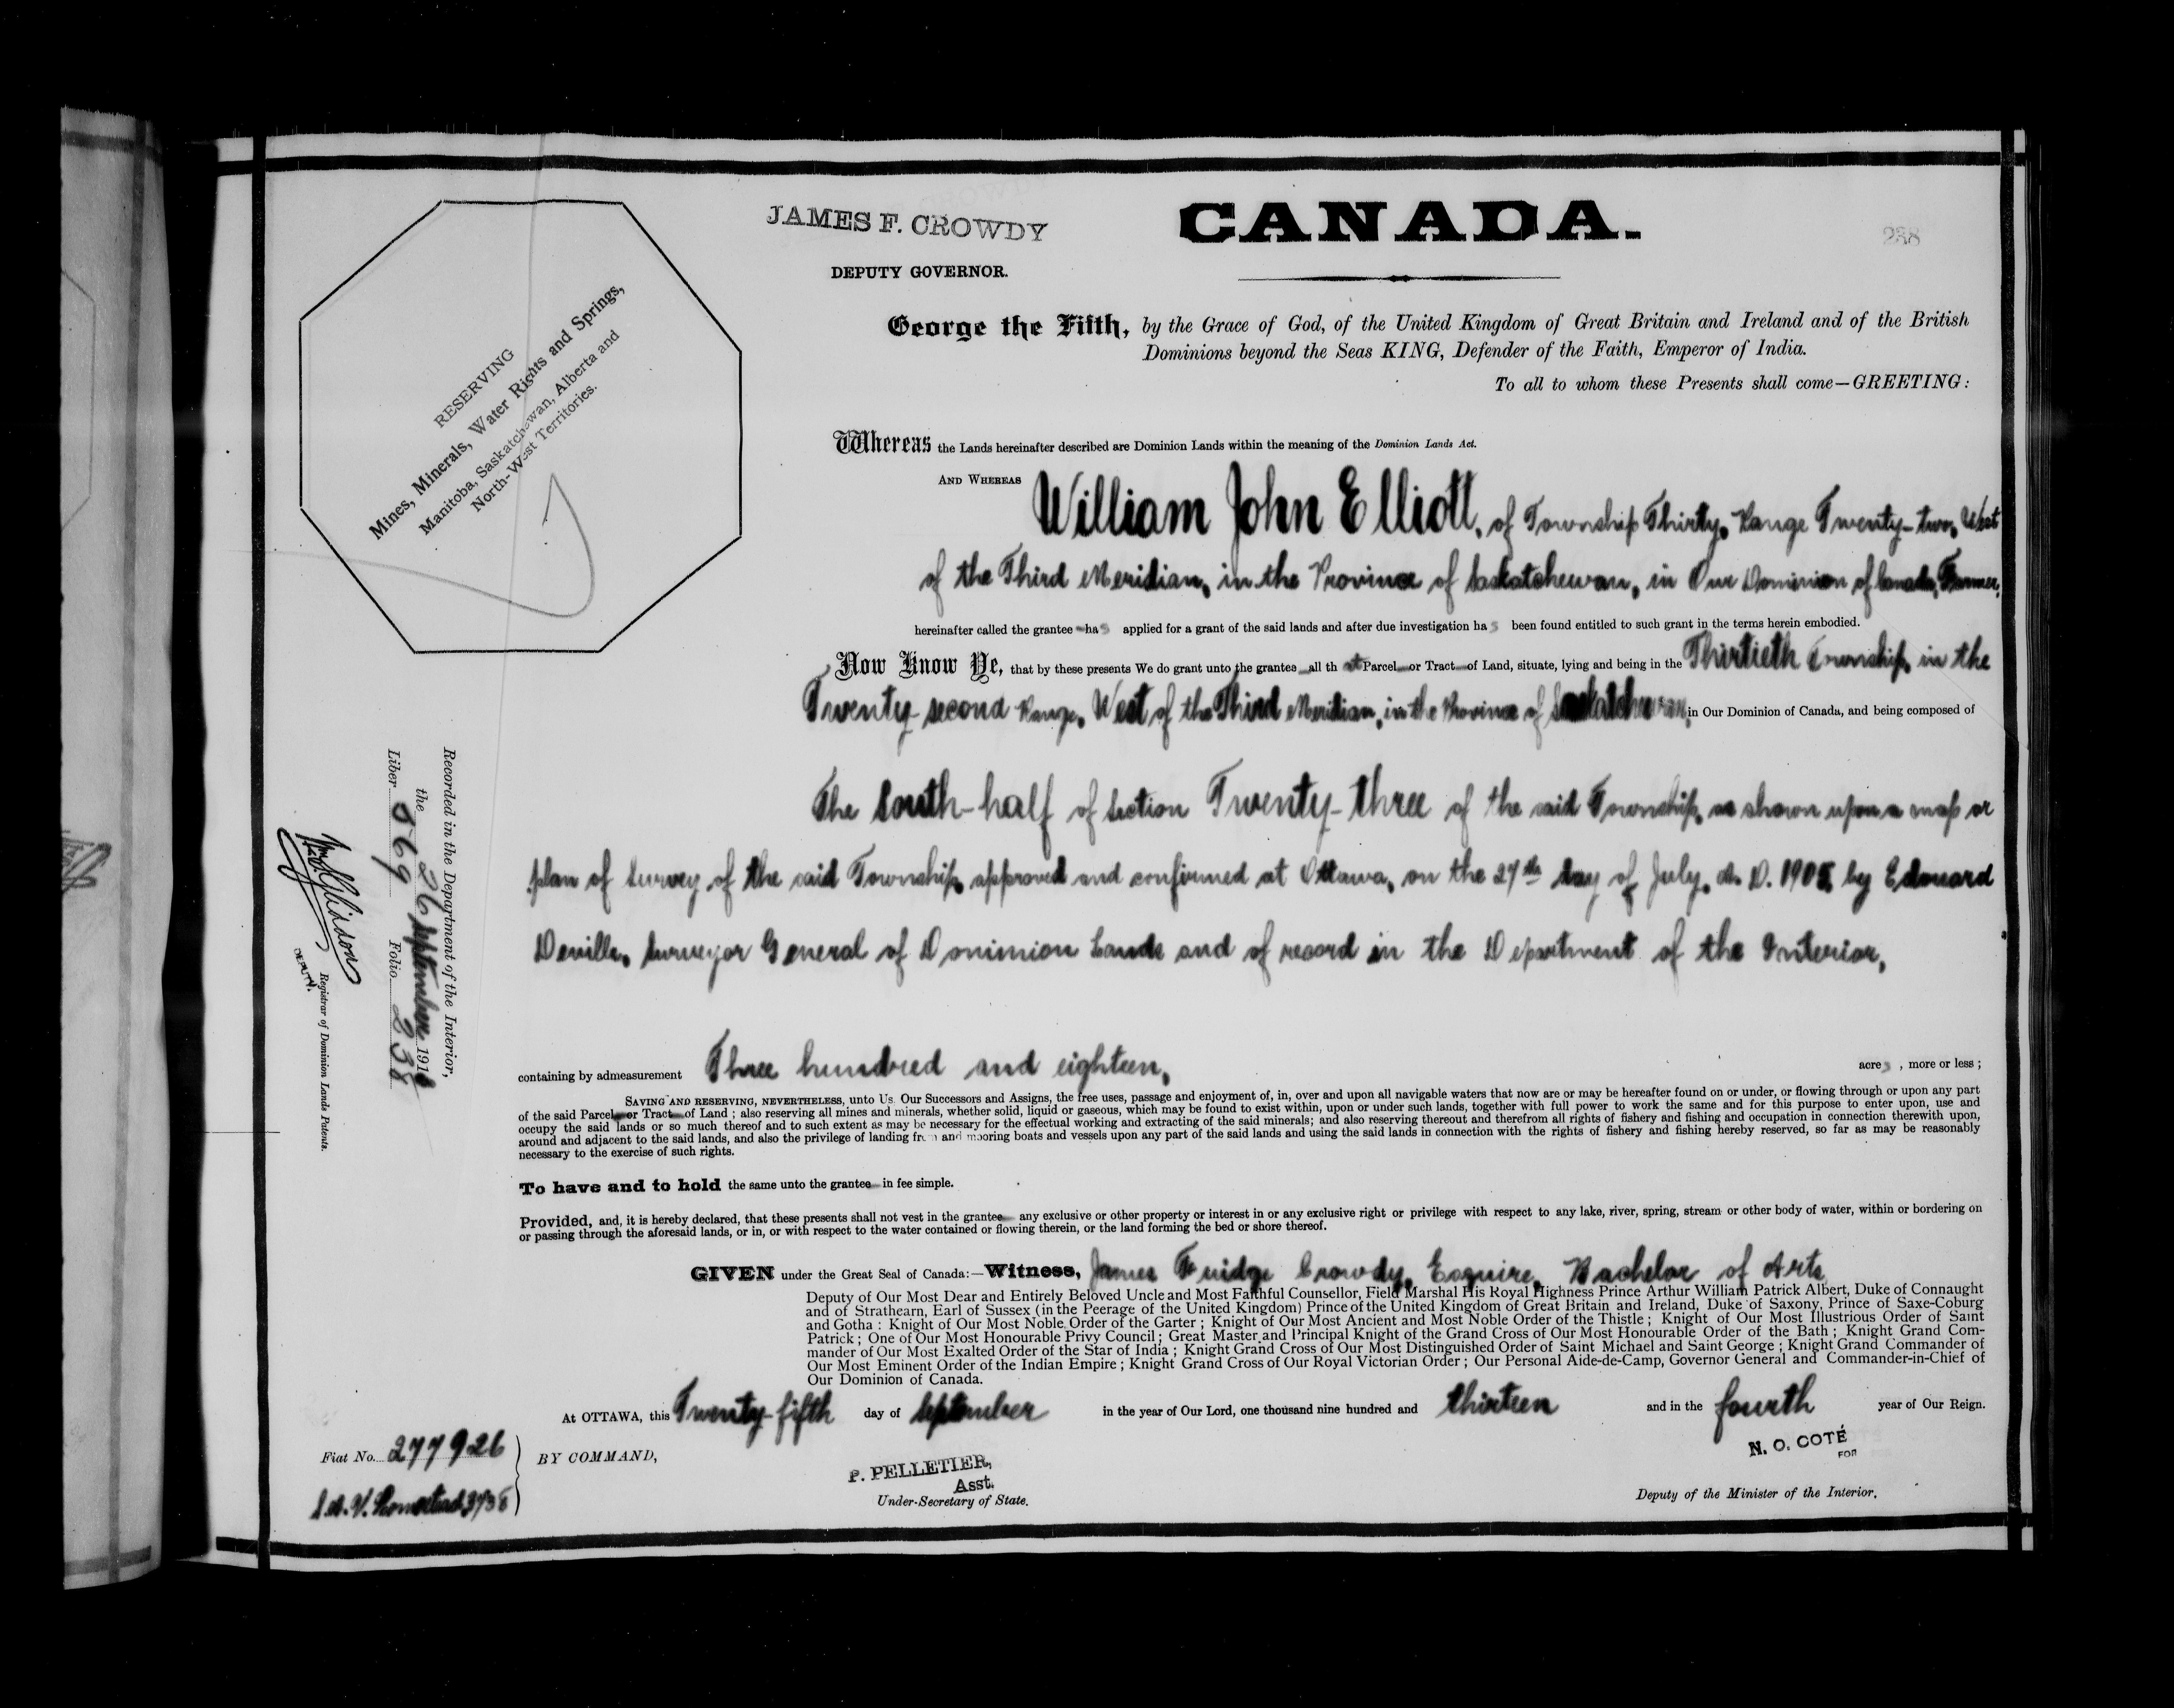 JAMES F. CROWDY
CANADA.
238
DEPUTY GOVERNOR.
RESERVING
Mines, Minerals, Water Rights and Springs,
Manitoba, Saskatchewan, Alberta and
North-West Territories.
George the Fifth, by the Grace of God, of the United Kingdom of Great Britain and Ireland and of the British
Dominions beyond the Seas KING, Defender of the Faith, Emperor of India.
To all to whom these Presents shall come—GREETING:
Whereas the Lands hereinafter described are Dominion Lands within the meaning of the Dominion Lands Act.
AND WHEREAS William John Elliott, of Township Thirty, Range Twenty-two, West
of the Third Meridian, in the Province of Saskatchewan, in Our Dominion of Canada, Farmer,
hereinafter called the grantee has applied for a grant of the said lands and after due investigation has been found entitled to such grant in the terms herein embodied.
Now Know Ye, that by these presents We do grant unto the grantee all that Parcel or Tract of Land, situate, lying and being in the Thirtieth Township, in the
Twenty-second Range, West of the Third Meridian, in the Province of Saskatchewan, in Our Dominion of Canada, and being composed of
The South-half of Section Twenty-three of the said Township, as shown upon a map or
plan of Survey of the said Township, approved and confirmed at Ottawa, on the 27th day of July, A. D. 1905, by Edouard
Deville, Surveyor General of Dominion Lands and of record in the Department of the Interior,
containing by admeasurement Three hundred and eighteen, acres, more or less;
SAVING AND RESERVING, NEVERTHELESS, unto Us Our Successors and Assigns, the free uses, passage and enjoyment of, in, over and upon all navigable waters that now are or may be hereafter found on or under, or flowing through or upon any part
of the said Parcel or Tract of Land; also reserving all mines and minerals, whether solid, liquid or gaseous, which may be found to exist within, upon or under such lands, together with full power to work the same and for this purpose to enter upon, use and
occupy the said lands or so much thereof and to such extent as may be necessary for the effectual working and extracting of the said minerals; and also reserving thereout and therefrom all rights of fishery and fishing and occupation in connection therewith upon,
around and adjacent to the said lands, and also the privilege of landing from and mooring boats and vessels upon any part of the said lands and using the said lands in connection with the rights of fishery and fishing hereby reserved, so far as may be reasonably
necessary to the exercise of such rights.
To have and to hold the same unto the grantee in fee simple.
Provided, and, it is hereby declared, that these presents shall not vest in the grantee any exclusive or other property or interest in or any exclusive right or privilege with respect to any lake, river, spring, stream or other body of water, within or bordering on
or passing through the aforesaid lands, or in, or with respect to the water contained or flowing therein, or the land forming the bed or shore thereof.
GIVEN under the Great Seal of Canada:—Witness, James Fuidge Crowdy, Esquire, Bachelor of Arts
Deputy of Our Most Dear and Entirely Beloved Uncle and Most Faithful Counsellor, Field Marshal His Royal Highness Prince Arthur William Patrick Albert, Duke of Connaught
and of Strathearn, Earl of Sussex (in the Peerage of the United Kingdom) Prince of the United Kingdom of Great Britain and Ireland, Duke of Saxony, Prince of Saxe-Coburg
and Gotha: Knight of Our Most Noble Order of the Garter; Knight of Our Most Ancient and Most Noble Order of the Thistle; Knight of Our Most Illustrious Order of Saint
Patrick; One of Our Most Honourable Privy Council; Great Master and Principal Knight of the Grand Cross of Our Most Honourable Order of the Bath; Knight Grand Com-
mander of Our Most Exalted Order of the Star of India; Knight Grand Cross of Our Most Distinguished Order of Saint Michael and Saint George; Knight Grand Commander of
Our Most Eminent Order of the Indian Empire; Knight Grand Cross of Our Royal Victorian Order; Our Personal Aide-de-Camp, Governor General and Commander-in-Chief of
Our Dominion of Canada.
At OTTAWA, this Twenty-fifth day of September in the year of Our Lord, one thousand nine hundred and thirteen and in the fourth year of Our Reign.
N. O. COTÉ
FOR
Fiat No. 277926
BY COMMAND,
P. PELLETIER,
Asst.
Under-Secretary of State.
Deputy of the Minister of the Interior.
Recorded in the Department of the Interior,
the 26 September 191
Liber 569 Folio 238
DEPUTY. Registrar of Dominion Lands Patents.